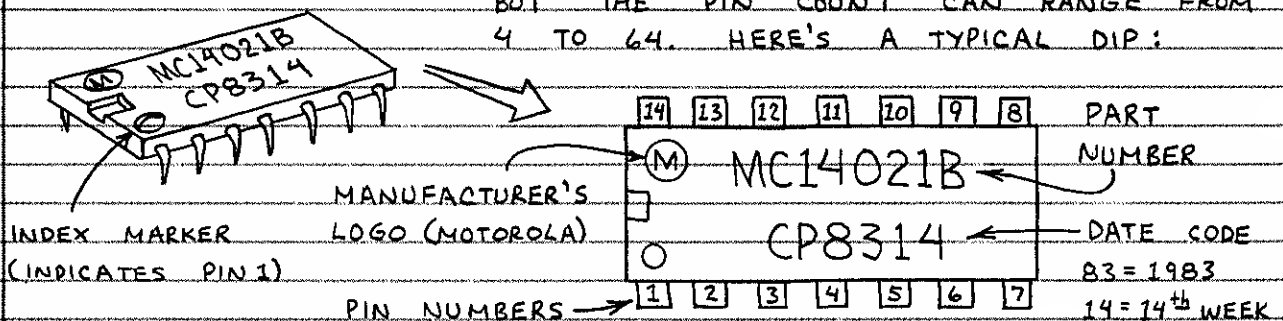 BUT THE PIN COUNT CAN RANGE FROM
4 TO 64. HERE'S A TYPICAL DIP:
M MC14021B
CP8314
INDEX MARKER
(INDICATES PIN 1)
MANUFACTURER'S
LOGO (MOTOROLA)
PIN NUMBERS
14 13 12 11 10 9 8
M MC14021B
CP8314
1 2 3 4 5 6 7
PART
NUMBER
DATE CODE
83 = 1983
14 = 14th WEEK